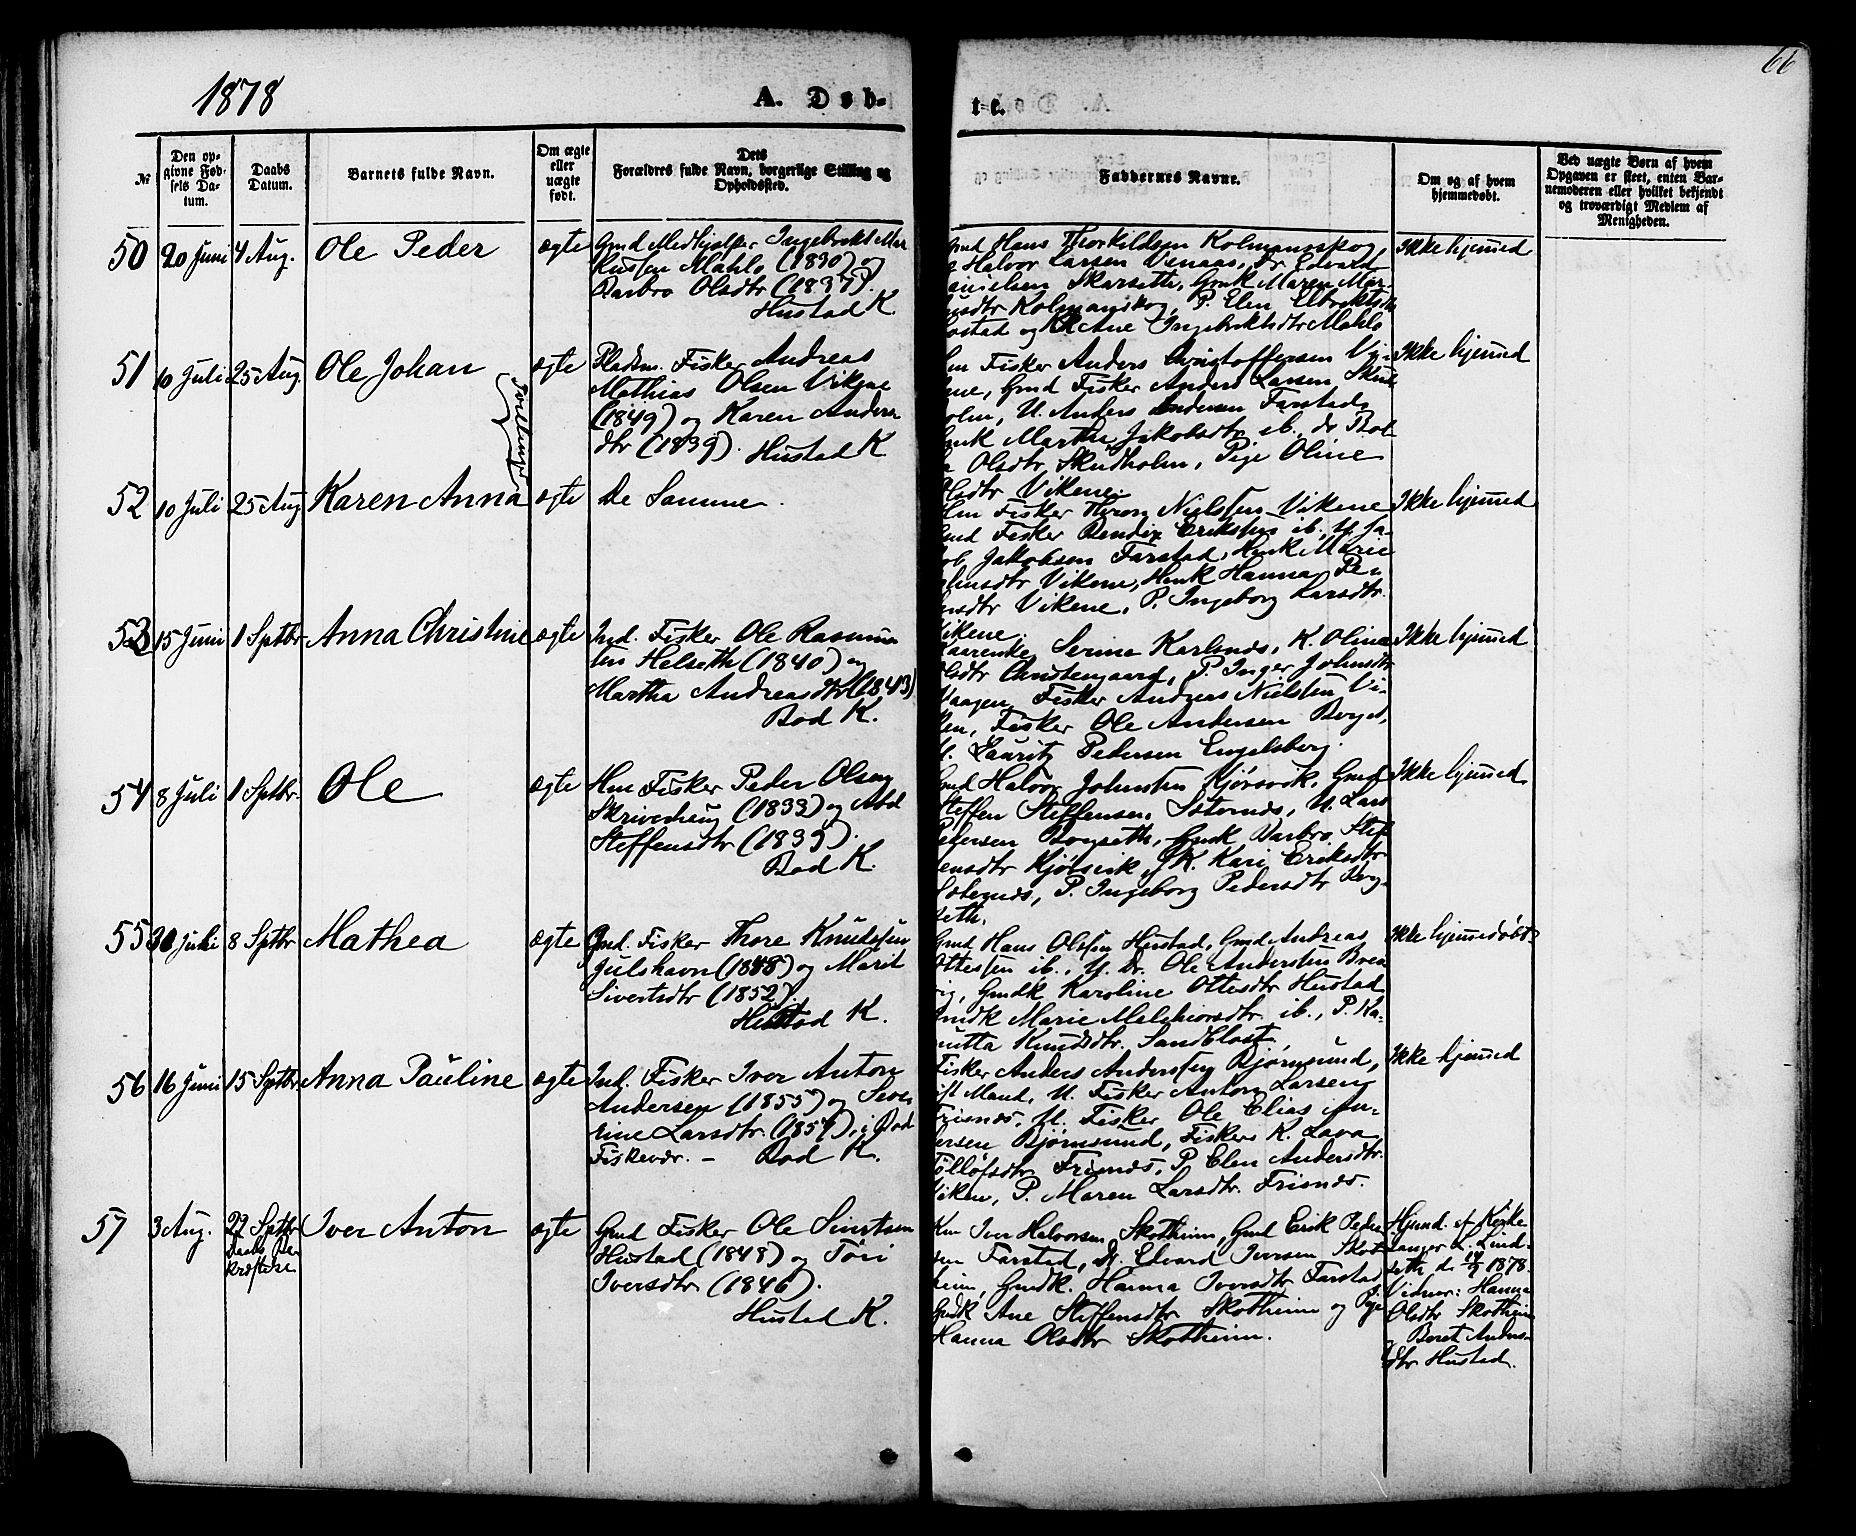 1878
A. Døb-
te.
66
№
Den op-
givne Fød-
sels Da-
tum.
Daabs
Datum.
Barnets fulde Navn.
Om ægte
eller
uægte
født.
Dets
Forældres fulde Navn, borgerlige Stilling og
Opholdssted.
Faddernes Navne.
Om og af hvem
hjemmedøbt.
Ved uægte Børn af hvem
Opgaven er skeet, enten Bar-
nemoderen eller hvilket bekjendt
og troværdigt Medlem af
Menigheden.
50 20 Juni 4 Aug. Ole Peder ægte
Gmd Medhjelper Ingebrikt Mar
kussen Mahlo (1830) og
Barbro Olsdtr (1837).
Hustad K
Gmd Hans Thorkildsen Kolmannskog,
Halvor Larsen Venaas, Dr. Edvard
Danielsen Skarseth, Gmk Maren Mar-
Kolmanskog, P. Elen
og Ane Ingebriktsdtr Mahlo
Ikke hjemmed
51 10 Juli 25 Aug. Ole Johan ægte
Tvillinger
Pladsm. Fisker Andreas
Mathias Olsen Vikene
(1849) og Karen Anders
dtr (1839). Hustad K
Fisker Anders Christoffersen Vi-
kene, Gmd Fisker Anders Larsen Skud-
holm, U. Anders Andersen Farstad,
Gmk Martha Jakobsdtr ib. dr
Olsdtr Skudholm, Pige Oline
Olsdtr Vikene.
Ikke hjemmed
52 10 Juli 25 Aug Karen Anna ægte
De Samme.
Fisker Nielssen Vikene
Gmd Fisker Bendix Erikssen ib., U. Ja-
kob Jakobsen Farstad, Hmk Marie
Johnsdtr Vikene, Hmk Hanna Pe-
Vikene, P. Ingeborg Larsdtr.
Vikene.
Ikke hjemmed
53 15 Juni 1 Sptbr Anna Christine ægte
Ind. Fisker Ole Rasmus
sen Helseth (1840) og
Martha Andreasdtr (1843)
Bod K.
Serine Karlsnds, K. Olina
Olsdtr Christengaard, P. Inger Johnsdtr
Vaagen, Fisker Andreas Nielsen Vi-
ken, Fisker Ole Andersen
U. Lauritz Pedersen Engelsberg.
Ikke hjemmed
54 8 Juli 1 Sptbr. Ole ægte
Hm Fisker Peder Olsen
(1833) og Abel
Steffensdtr (1839).
Bod K.
Gmd Halvor Johnsen Kjørsvik, Gmd
Steffen Steffensen, U. Lars
Pedersen Bergseth, Gmk Barbro Stef
fensdtr Kjørsvik, K. Kari Eriksdtr
P. Ingeborg Pedersdtr Berg-
seth.
Ikke hjemmed
55 30 Juli 8 Sptbr Mathea ægte
Gmd. Fisker Thore Knudssen
Julshavn (1848) og Marit
Sivertsdtr (1852).
Hustad K.
Gmd Hans Olssen Hustad, Gmd Andreas
Ottessen ib., U. Dr. Ole Anderssen Bre
vig, Gmdk Karoline Ottesdtr Hustad
Gmdk Marie Melchiorsdtr ib., P. Ka-
Knudsdtr. Sandblost,
Ikke hjemmedøbt
56 16 Juni 15 Sptbr Anna Pauline ægte
Ind. Fisker Iver Anton
Andersen (1855) og Seve
rine Larsdtr. (1857), i Bod
Fiskevær. — Bod K.
Fisker Anders Anderssen Bjørnsund,
gift Mand, U. Fisker Anton Larsen
Frisnes, U. Fisker Ole Elias An-
dersen Bjørnsund, Fiskers K. Lava
Tølløfsdtr Frisnes, P. Elen Andersdtr.
Viken, P. Maren Larsdtr. Frisnes.
Ikke hjemmed
57 3 Aug. 22 Sptbr Iver Anton ægte
Daabs Be
kræftelse
Gmd Fisker Ole Sivertsen
Hustad (1848) og Töri
Iversdtr (1846).
Hustad K.
Iver Halvorsen Skotheim, Gmd Erik Peder
sen Farstad, Dr. Edvard Iversen Skot
heim, Gmdk. Hanna Iversdtr Farstad
Gmdk Ane Steffensdtr Skotheim og Pige
Hanna Olsdtr Skotheim.
Hjmd. af Kirke
sanger L. Lind-
seth d. 14/9 1878.
Vidner: Hanna
Olsdtr Skotheim
og Beret Anders-
dtr Hustad.